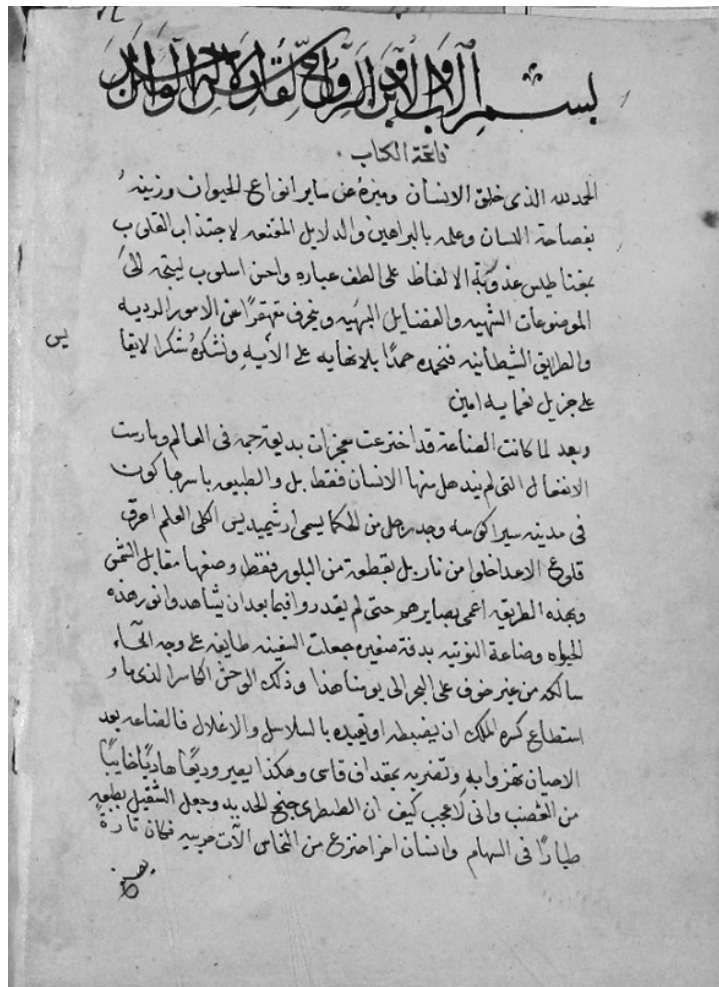 بسم الاب والابن والروح القدس الاله الواحد
فاتحة الكتاب
الحمد لله الذي خلق الانسان وميزه عن ساير انواع الحيوان وزينه
بفصاحة اللسان وعلمه بالبراهين والدلايل المقنعه لاجتذاب القلوب
بمغناطيس عذوبة الالفاظ على الطف عباره واحسن اسلوب ليتجه الى
الموضوعات الشهيه والفضايل البهيه وينحرف تقهقرًا عن الامور الرديه
والطرايق الشيطانيه فنحمده حمدًا بلا نهايه على الآيه ونشكره شكرا لايقا
يس
على جزيل نعمايه امين
وبعد لما كانت الصناعة قد اخترعت معجزات بديعة جمه فى العالم ومارست
الافعال التى لم ينذهل منها الانسان فقط بل والطبيعه باسرها كون
فى مدينه سيراكوسه وجد رجل من الحكما يسمى ارشيميديس الكلى العلم احرق
قلوع الاعدا خلوا من نار بل بقطعة من البلور فقط وضعها مقابل الشمس
وبهذه الطريقه اعمى بصايرهم حتى لم يقدروا فيما بعد ان يشاهدوا نور هذه
الحيواه وصناعة النوتيه بدفة صغيره جعلت السفينه طايفه على وجه الماء
سالكه من غير خوف على البحر الى يومنا هذا وذلك الوحش الكاسر الذى ما
استطاع كسره الملك ان يضبطه او يقيده بالسلاسل والاغلال فالصناعه بعد
الاحيان تهزوا به وتضربه بمقداف قاسى وهكذا يصير وديعًا هاديًا خايبًا
من الغضب وانى لاعجب كيف ان جنح الحديد وجعل الثقيل بطبعه
طيارًا فى السهام وانسان اخر اخترع من النحاس الآت حربيه فكان تارةً